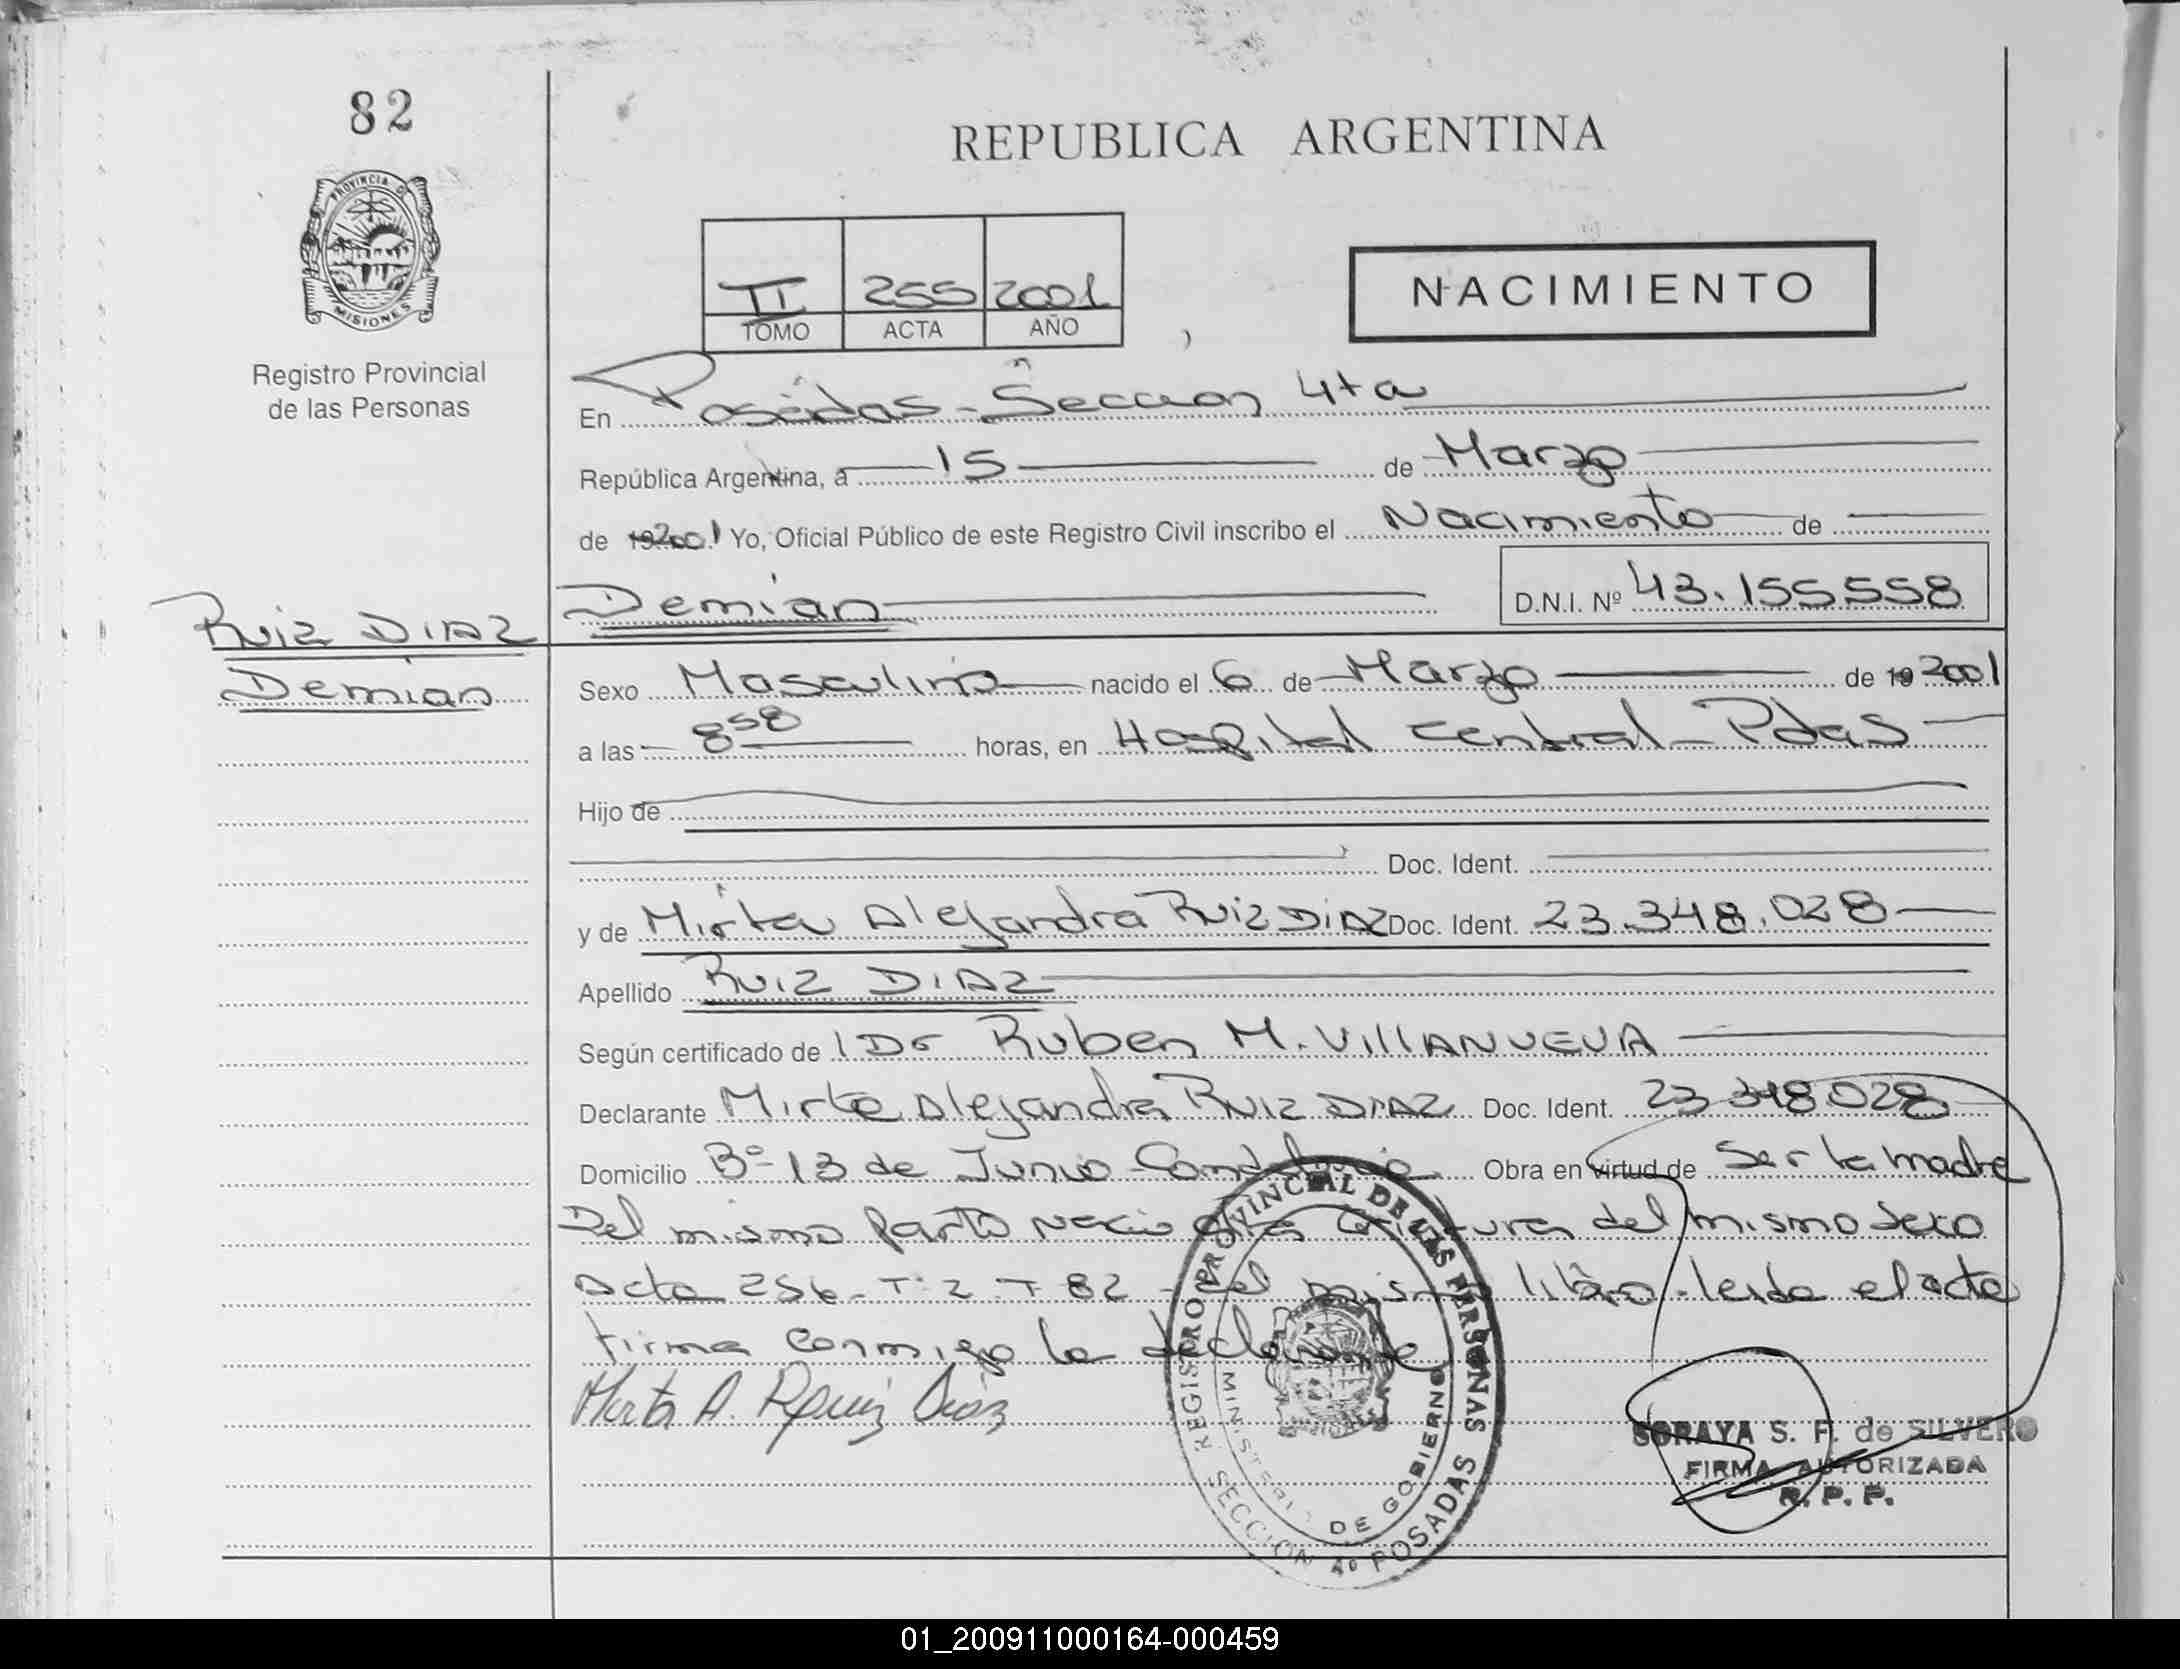 82
PROVINCIA D
MISIONES
Registro Provincial
de las Personas
REPUBLICA ARGENTINA
II 255 2001
TOMO ACTA AÑO
NACIMIENTO
En Posadas - Seccion 4ta
República Argentina, a 15 de Marzo
de 2001 Yo, Oficial Público de este Registro Civil inscribo el Nacimiento de
Demian D.N.I. Nº 43.155.558
Ruiz DIAZ
Demian
Sexo Masculino nacido el 6 de Marzo de 19 2001
a las 8 58 horas, en Hospital Central - Pdas
Hijo de
Doc. Ident.
y de Mirta Alejandra Ruiz DIAZ Doc. Ident. 23.348.028
Apellido RUIZ DIAZ
Según certificado de l Dr Ruben M. VILLANUEVA
Declarante Mirta Alejandra RUIZ DIAZ Doc. Ident. 23 348.028
Domicilio Bº 13 de Junio - Obra en virtud de Ser la madre
Del mismo parto nacio otra criatura del mismo sexo
Acta 256 - T: 2 - T 82 - del mismo libro - leida el acta
firma conmigo la declarante
Mirta A. Ruiz Diaz
REGISTRO PROVINCIAL DE LAS PERSONAS
MINISTERIO DE GOBIERNO
SECCION 4º POSADAS
SORAYA S. F. de SILVERO
FIRMA AUTORIZADA
R. P. P.
01_200911000164-000459